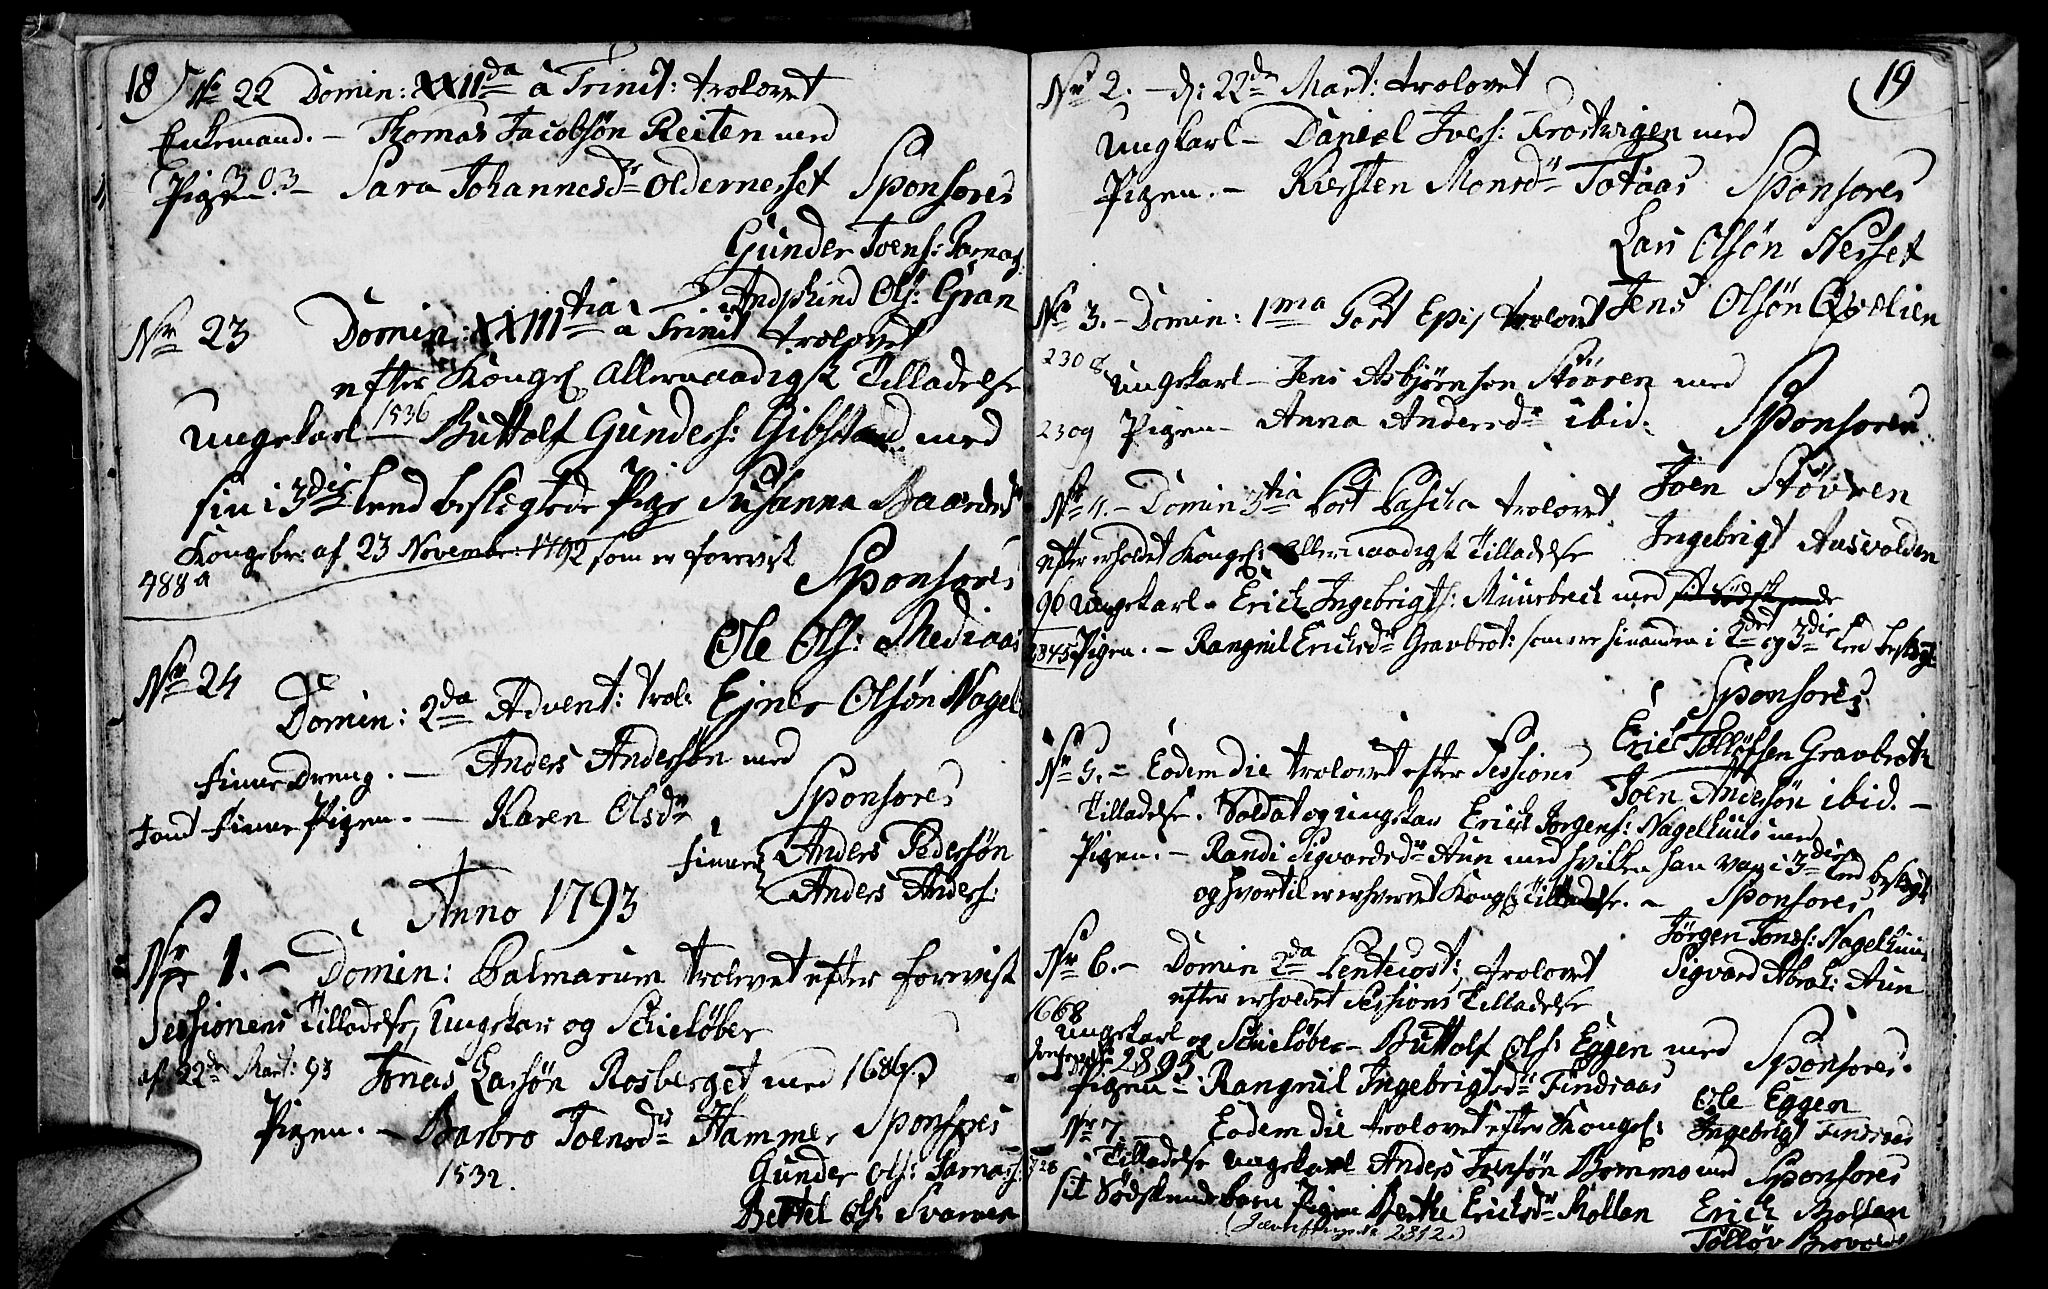 18
No 22 Domin: XXIIda a Trinit: trolovet
Enkemand. – Thomas Jacobsøn Reiten med
Pigen. 303 – Sara Johannesdr Oldernesset Sponsores
Gunder Joens: Barnas
Andphind Ols: Gran
Nr 23 Domin: XXIIItia a Trinit trolovet
efter Kongel Allernaadigst Tilladelse
Ungekarl 1536 Buttolf Gunders: Gibstad med
sin i 3die Lend beslegtede Pige Susanna Baardsdr
Kongebr: af 23 Novembr: 1792 som er forevist
488a
Sponsores
Ole Ols: Mediaas
Nr 24
Domin: 2da Advent: trol: Ejner Olsøn Nagel
Finnedreng. – Anders Andersøn med
samt Finne Pigen. – Karen Olsdr. Sponsores
Finner Anders Pedersøn
Anders Anders:
Anno 1793
Nr 1. – Domin: Palmarum trolovet efter forevist
Sessionens Tilladelse, Ungekarl og Schieløber
af 22de Mart: 93 Jonas Larsøn Rosberget med 1686
Pigen. – Barbro Joensdr Hammer Sponsores
1532.
Gunder Ols: Barnas:
Bertel Ols: Svarven
19
Nr 2. – d: 22de Mart: trolovet
Ungkarl – Daniel Ivers: Trostvigen med
Pigen. – Kiersten Monsdr Totaas Sponsores
Lars Olsøn Nesset
Jens Olsøn Qvelien
Nr 3. – Domin: 1ma Post Epij trolovet
2308
Ungekarl – Jens Asbjørnsen Støvren med
2309 Pigen – Anna Andersdr ibid: Sponsores
Joen Støvren
Ingebrigt Ausvolden
Nr 4. – Domin 3tia Post Pascha trolovet
efter erholdet Kongel: Allernaadigst Tilladelse
96 Ungekarl – Erich Ingebrigts: Muurbech med sit Sødskende
3845 Pigen. – Rangnil Erichsdr Gravbrot: som ere hinanden i 2det og 3die Led beslegt:
Sponsores
Erich Tolløfsen Gravbrøtt
Joen Andersøn ibid. –
Nr 5. – Eodem die trolovet efter Sessions
Tilladelse. Soldat og Ungekar Erich Jorgens: Nagelhuus med
Pigen. – Randi Sigvardsdr Aun med hvilken han var i 3die Led beslegt
og hvortil er erhvervet Kongl: Tilladelse. – Sponsores
Jørgen Jons: Nagelhuus
Sigvard Abrah: Aun
Nr 6. – Domin 2da Pentecost: trolovet
efter erholdet Sessions Tilladelse
1668
Ungekarl og Schieløber – Buttolf Ols: Eggen med Sponsores.
2895
Pigen – Rangnil Ingebrigtsdr Findsaas
Ole Eggen
Ingebrigt Findsaas
Nr 7. Eodem die trolovet efter Kongel:
728 Tilladelse Ungekarl Anders Jensøn Bomme med Sponsores
sit Sødskendebarn Pigen Berthe Erichsdr Mollen
Erich Mollen
Tolløv
2312.)